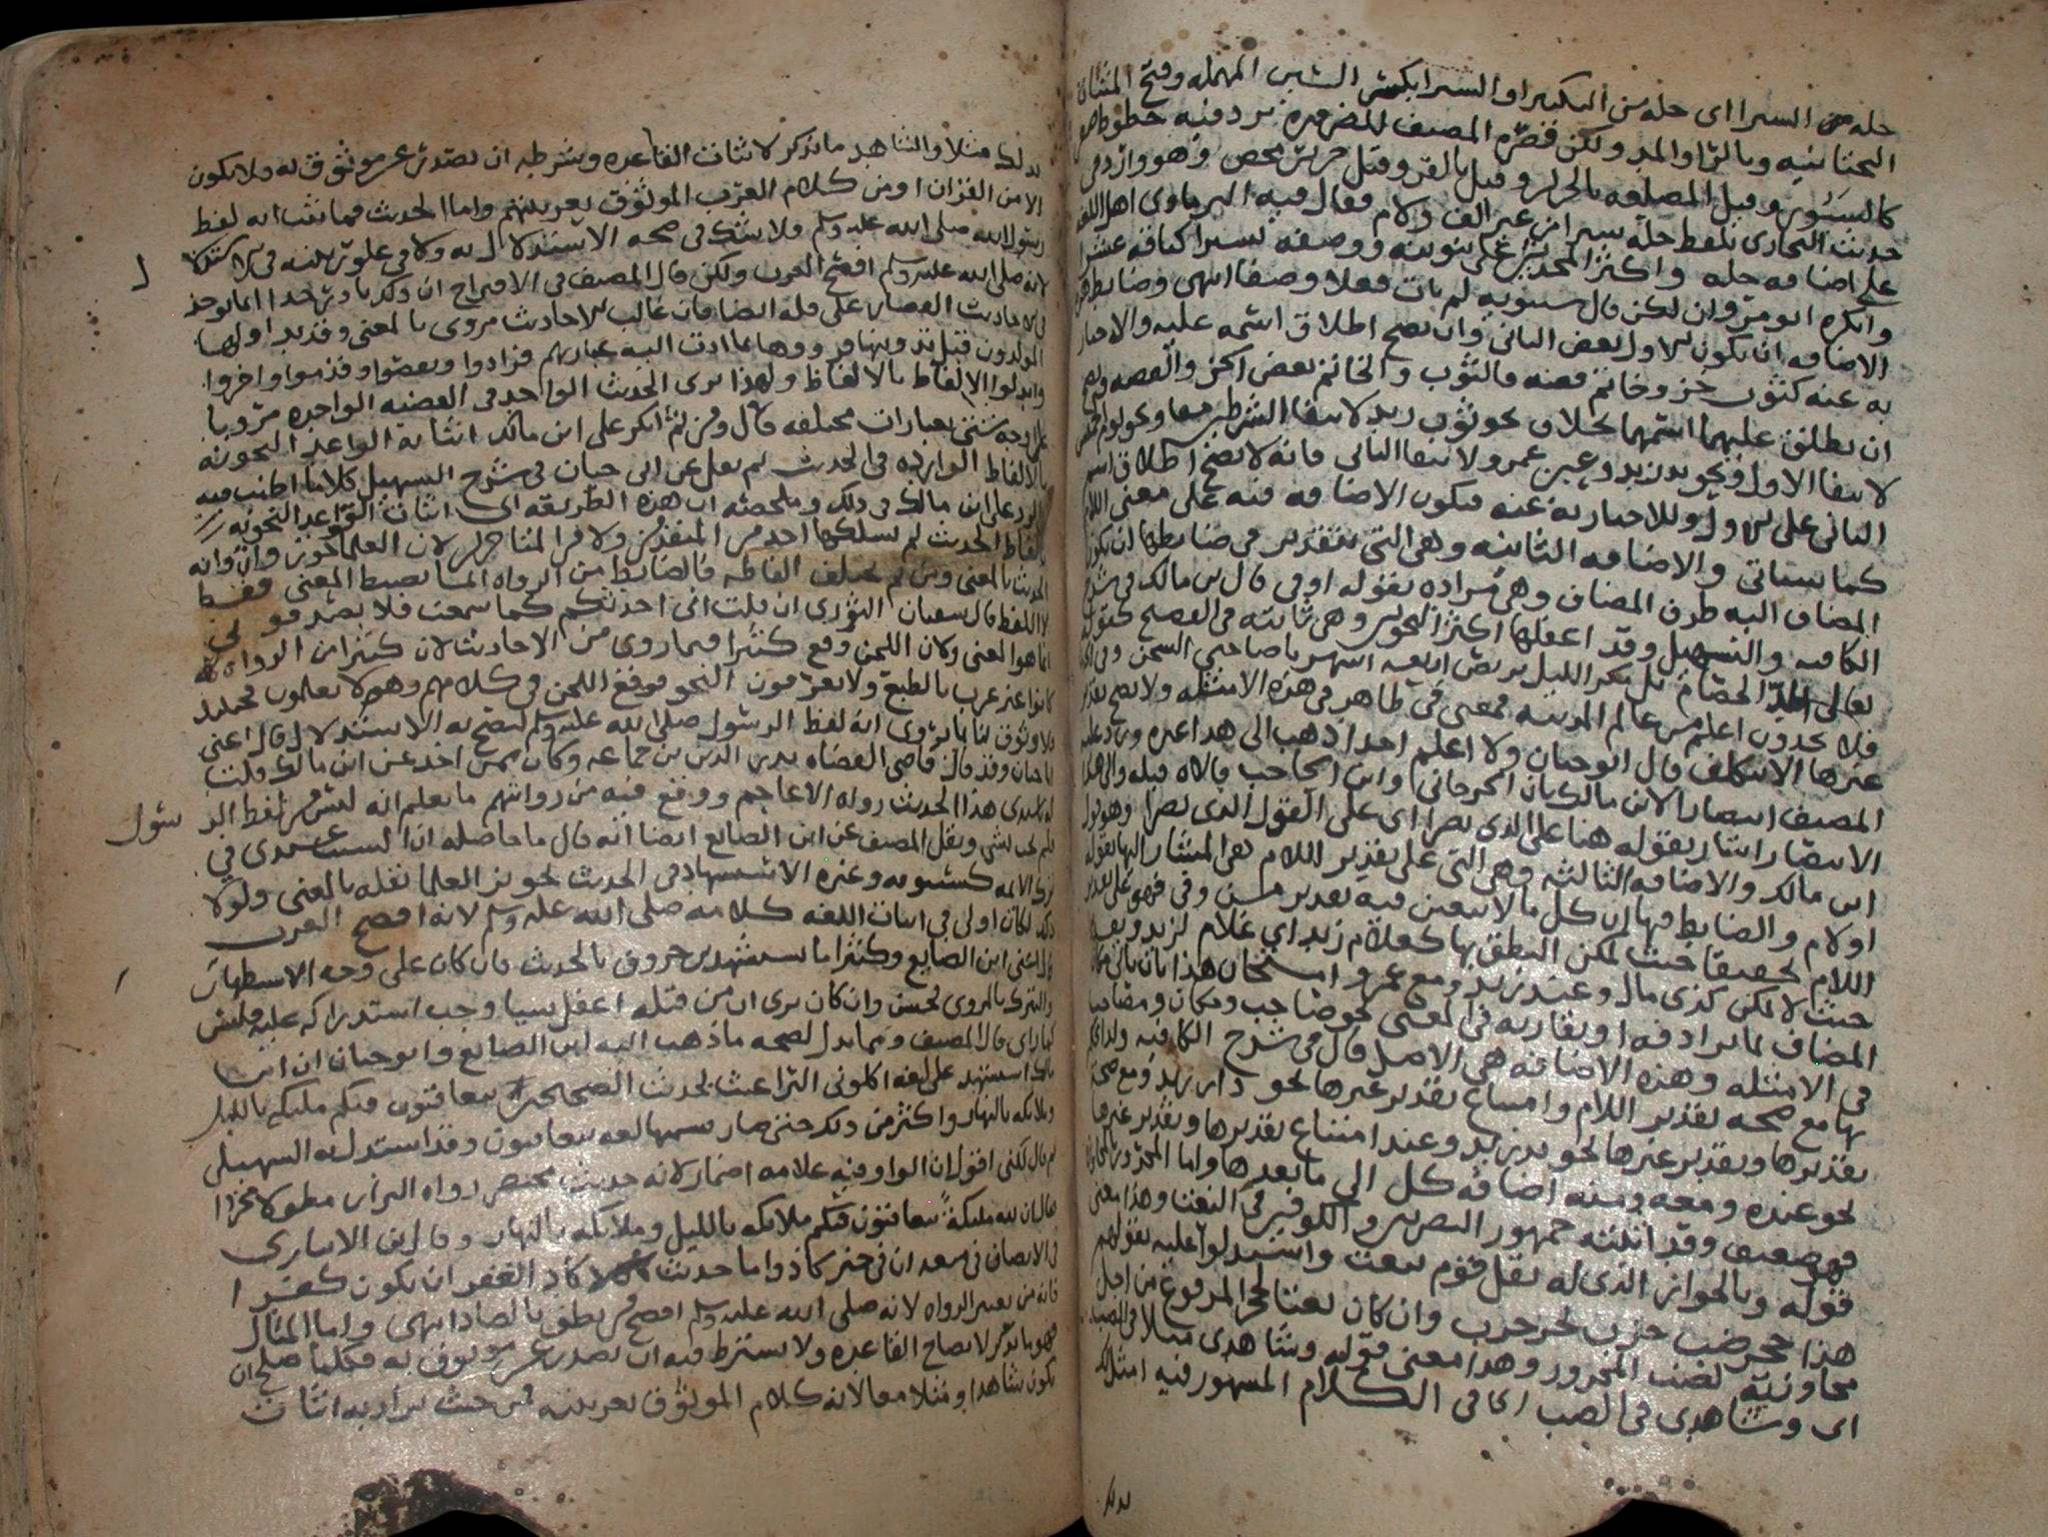 حله من السيرا اى حله من السيرا والسيرا بكسر السين المهمله وفتح المثناة
التحتانيه وبالرا والمد ولكن قصره المصنف للضروره برد فيه خطوط
كالسيور وقيل المضلعه بالحرير وقيل بالقز وقيل حرير محض وهو وارد فى
حديث البخارى بلفظ حلة سيرا من غير الف ولام فقال فيه البرماوى اهل اللغه
على اضافه حله واكثر المحدثين على تنوينه ووصفه بسيرا كناقه عشرا
وانكره ابو مروان لكن قال سيبويه لم يات فعلا وصفا انتهى وضابط هذه
الاضافه ان يكون الاول بعض الثانى وان يصح اطلاق اسمه عليه والاخبار
به عنه كثوب خز وخاتم فضه فالثوب والخاتم بعض الخز والفضه ويصح
ان يطلق عليهما اسمهما بخلاف نحو ثوب زيد لانتفا الشرطين معا ونحو يوم الخميس
لانتفا الاول ونحو يد زيد وعين عمرو لانتفا الثانى فانه لا يصح اطلاق اسم
الثانى على الاول وللاخبار به عنه فتكون الاضافه فيه على معنى اللام
كما سياتى والاضافه الثانيه وهى التى بتقدير فى ضابطها ان يكون
المضاف اليه ظرف المضاف وهى مراده بقوله او فى قال ابن مالك فى شرح
الكافيه والتسهيل وقد اغفلها اكثر النحويين وهى ثابته فى الفصيح كقوله
تعالى الد الخصام بل مكر الليل تربص اربعه اشهر يا صاحبى السجن وفى الحديث
فلا يجدون اعلم من عالم المدينه فمعنى فى ظاهر فى هذه الامثله ولا يصح تقدير
غيرها الا بتكلف قال ابو حيان ولا اعلم احدا ذهب الى هذا غيره ورد عليه
المصنف انتصارا لابن مالك بان الجرجانى وابن الحاجب قالاه قبله والى هذا
الانتصار اشار بقوله هنا على الذى نصرا اى على القول الذى نصرا وهو قول
ابن مالك والاضافه الثالثه وهى التى على تقدير اللام هى المشار اليها بقوله
او لام والضابط فيها ان كل ما لا يتعين فيه تقدير من وفى فهو على تقدير
اللام تحقيقا حيث يمكن النطق بها كغلام زيد اى غلام لزيد وتقديرا
حيث لا يمكن كذى مال وعند زيد ومع عمرو وامتحان هذا بان ياتى مكان
المضاف بما يرادفه او يقاربه فى المعنى نحو صاحب ومكان ومصاحب
فى الامثله وهذه الاضافه هى الاصل قال فى شرح الكافيه ولذا
بها مع صحه تقدير اللام وامتناع تقدير غيرها نحو دار زيد ومع صحة
تقديرها وتقدير غيرها نحو يد زيد وعند امتناع تقديرها وتقدير غيرها
نحو عنده ومعه ومنه اضافه كل الى ما بعدها واما المجرور بالمجاوره
فهو ضعيف وقد اثبته جمهور البصريين والكوفيين فى النعت وهذا معنى
قوله وبالجواز الذى له نقل قوم بنعت واستدلوا عليه بقولهم
هذا جحر ضب خرب بجر خرب وان كان نعتا لجحر المرفوع من اجل
مجاورته لضب المجرور وهذا معنى قوله وشاهدى مثلا فى الضب
اى وشاهدى فى الضب اى فى الكلام المشهور فيه امثل لك
بذلك
بذلك مثلا والشاهد ما يذكر لاثبات القاعده وشرطه ان يصدر عن موثوق به ولا يكون
الا من القران او من كلام العرب الموثوق بعربيتهم واما الحديث فما ثبت انه لفظ
رسول الله صلى الله عليه وسلم فلا شك فى صحه الاستدلال به ولا فى علو رتبته فى الاستدلال
لانه صلى الله عليه وسلم افصح العرب ولكن قال المصنف فى الاقتراح ان ذلك نادر جدا انما يوجد
فى الاحاديث القصار على قله ايضا فان غالب الاحاديث مروى بالمعنى وقد تداولها
المولدون قبل تدوينها فرووها بما ادت اليه عبارتهم فزادوا ونقصوا وقدموا واخروا
وابدلوا الالفاظ بالالفاظ ولهذا ترى الحديث الواحد فى القصه الواحده مرويا
على اوجه شتى بعبارات مختلفه قال ومن ثم انكر على ابن مالك اثباته القواعد النحويه
بالالفاظ الوارده فى الحديث ثم نقل عن ابى حيان فى شرح التسهيل كلاما اطنب فيه
بالرد على ابن مالك فى ذلك وملخصه ان هذه الطريقه اى اثبات القواعد النحويه
بالفاظ الحديث لم يسلكها احد من المتقدمين ولا من المتاخرين لان العلما جوزوا روايه
الحديث بالمعنى ومن ثم تختلف الفاظه فالضابط من الرواه انما يضبط المعنى فقط
لا اللفظ قال سفيان الثورى ان قلت انى احدثكم كما سمعت فلا تصدقونى
انما هو المعنى ولان اللحن وقع كثيرا فيما روى من الاحاديث لان كثيرا من الرواه
كانوا غير عرب بالطبع ولا يعرفون النحو فوقع اللحن فى كلامهم وهم لا يعلمون
فلا وثوق لنا بما روى انه لفظ الرسول صلى الله عليه وسلم ليصح به الاستدلال قال اعنى
ابا حيان وقد قال قاضى القضاه بدر الدين بن جماعه وكان ممن اخذ عن ابن مالك قلت
له يا سيدى هذا الحديث رواه الاعاجم ووقع فيه من روايتهم ما يعلم انه ليس من لفظ الرسول
فلم يجب بشى ونقل المصنف عن ابن الصايع ايضا انه قال ما حاصله ان السبب عندى فى
ترك الائمه كسيبويه وغيره الاستشهاد فى الحديث تجويز العلما نقله بالمعنى ولولا
ذلك لكان اولى فى اثبات اللغه كلامه صلى الله عليه وسلم لانه افصح العرب
قال اعنى ابن الصايع وكثيرا ما يستشهد بن خروف بالحديث فان كان على وجه الاستظهار
والتبرك بالمروى فحسن وان كان يرى ان من قبله اغفل شيا وجب استدراكه عليه فليس
كما راى قال المصنف ومما يدل لصحه ما ذهب اليه ابن الصايع وابو حيان ان ابن
مالك استشهد على لغه اكلونى البراغيث بحديث الصحيحين يتعاقبون فيكم مليكه بالليل
وملائكه بالنهار واكثر من ذلك حتى صار يسميها لغه يتعاقبون وقد استدل به السهيلى
ثم قال لكنى اقول ان الواو فيه علامه اضمار لانه حديث مختصر رواه البزار مطولا مجردا
فقال ان لله مليكة يتعاقبون فيكم ملائكه بالليل وملائكه بالنهار وقال بن الانبارى
فى الانصاف فى منعه ان فى خبر كاد واما حديث كاد الفقر ان يكون كفرا
فانه من تغيير الرواه لانه صلى الله عليه وسلم افصح من نطق بالضاد انتهى واما المثال
فهو ما يذكر لايضاح القاعده ولا يشترط فيه ان يصدر عن موثوق به فكلما صلح ان
يكون شاهدا ومثلا معا لانه كلام الموثوق بعربيته فمن حيث يراد به اثبات